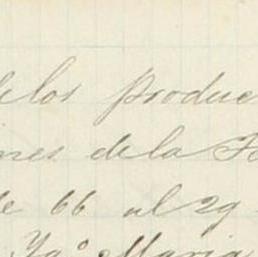 delos produc
nes dela
de 66 al 29
Maria